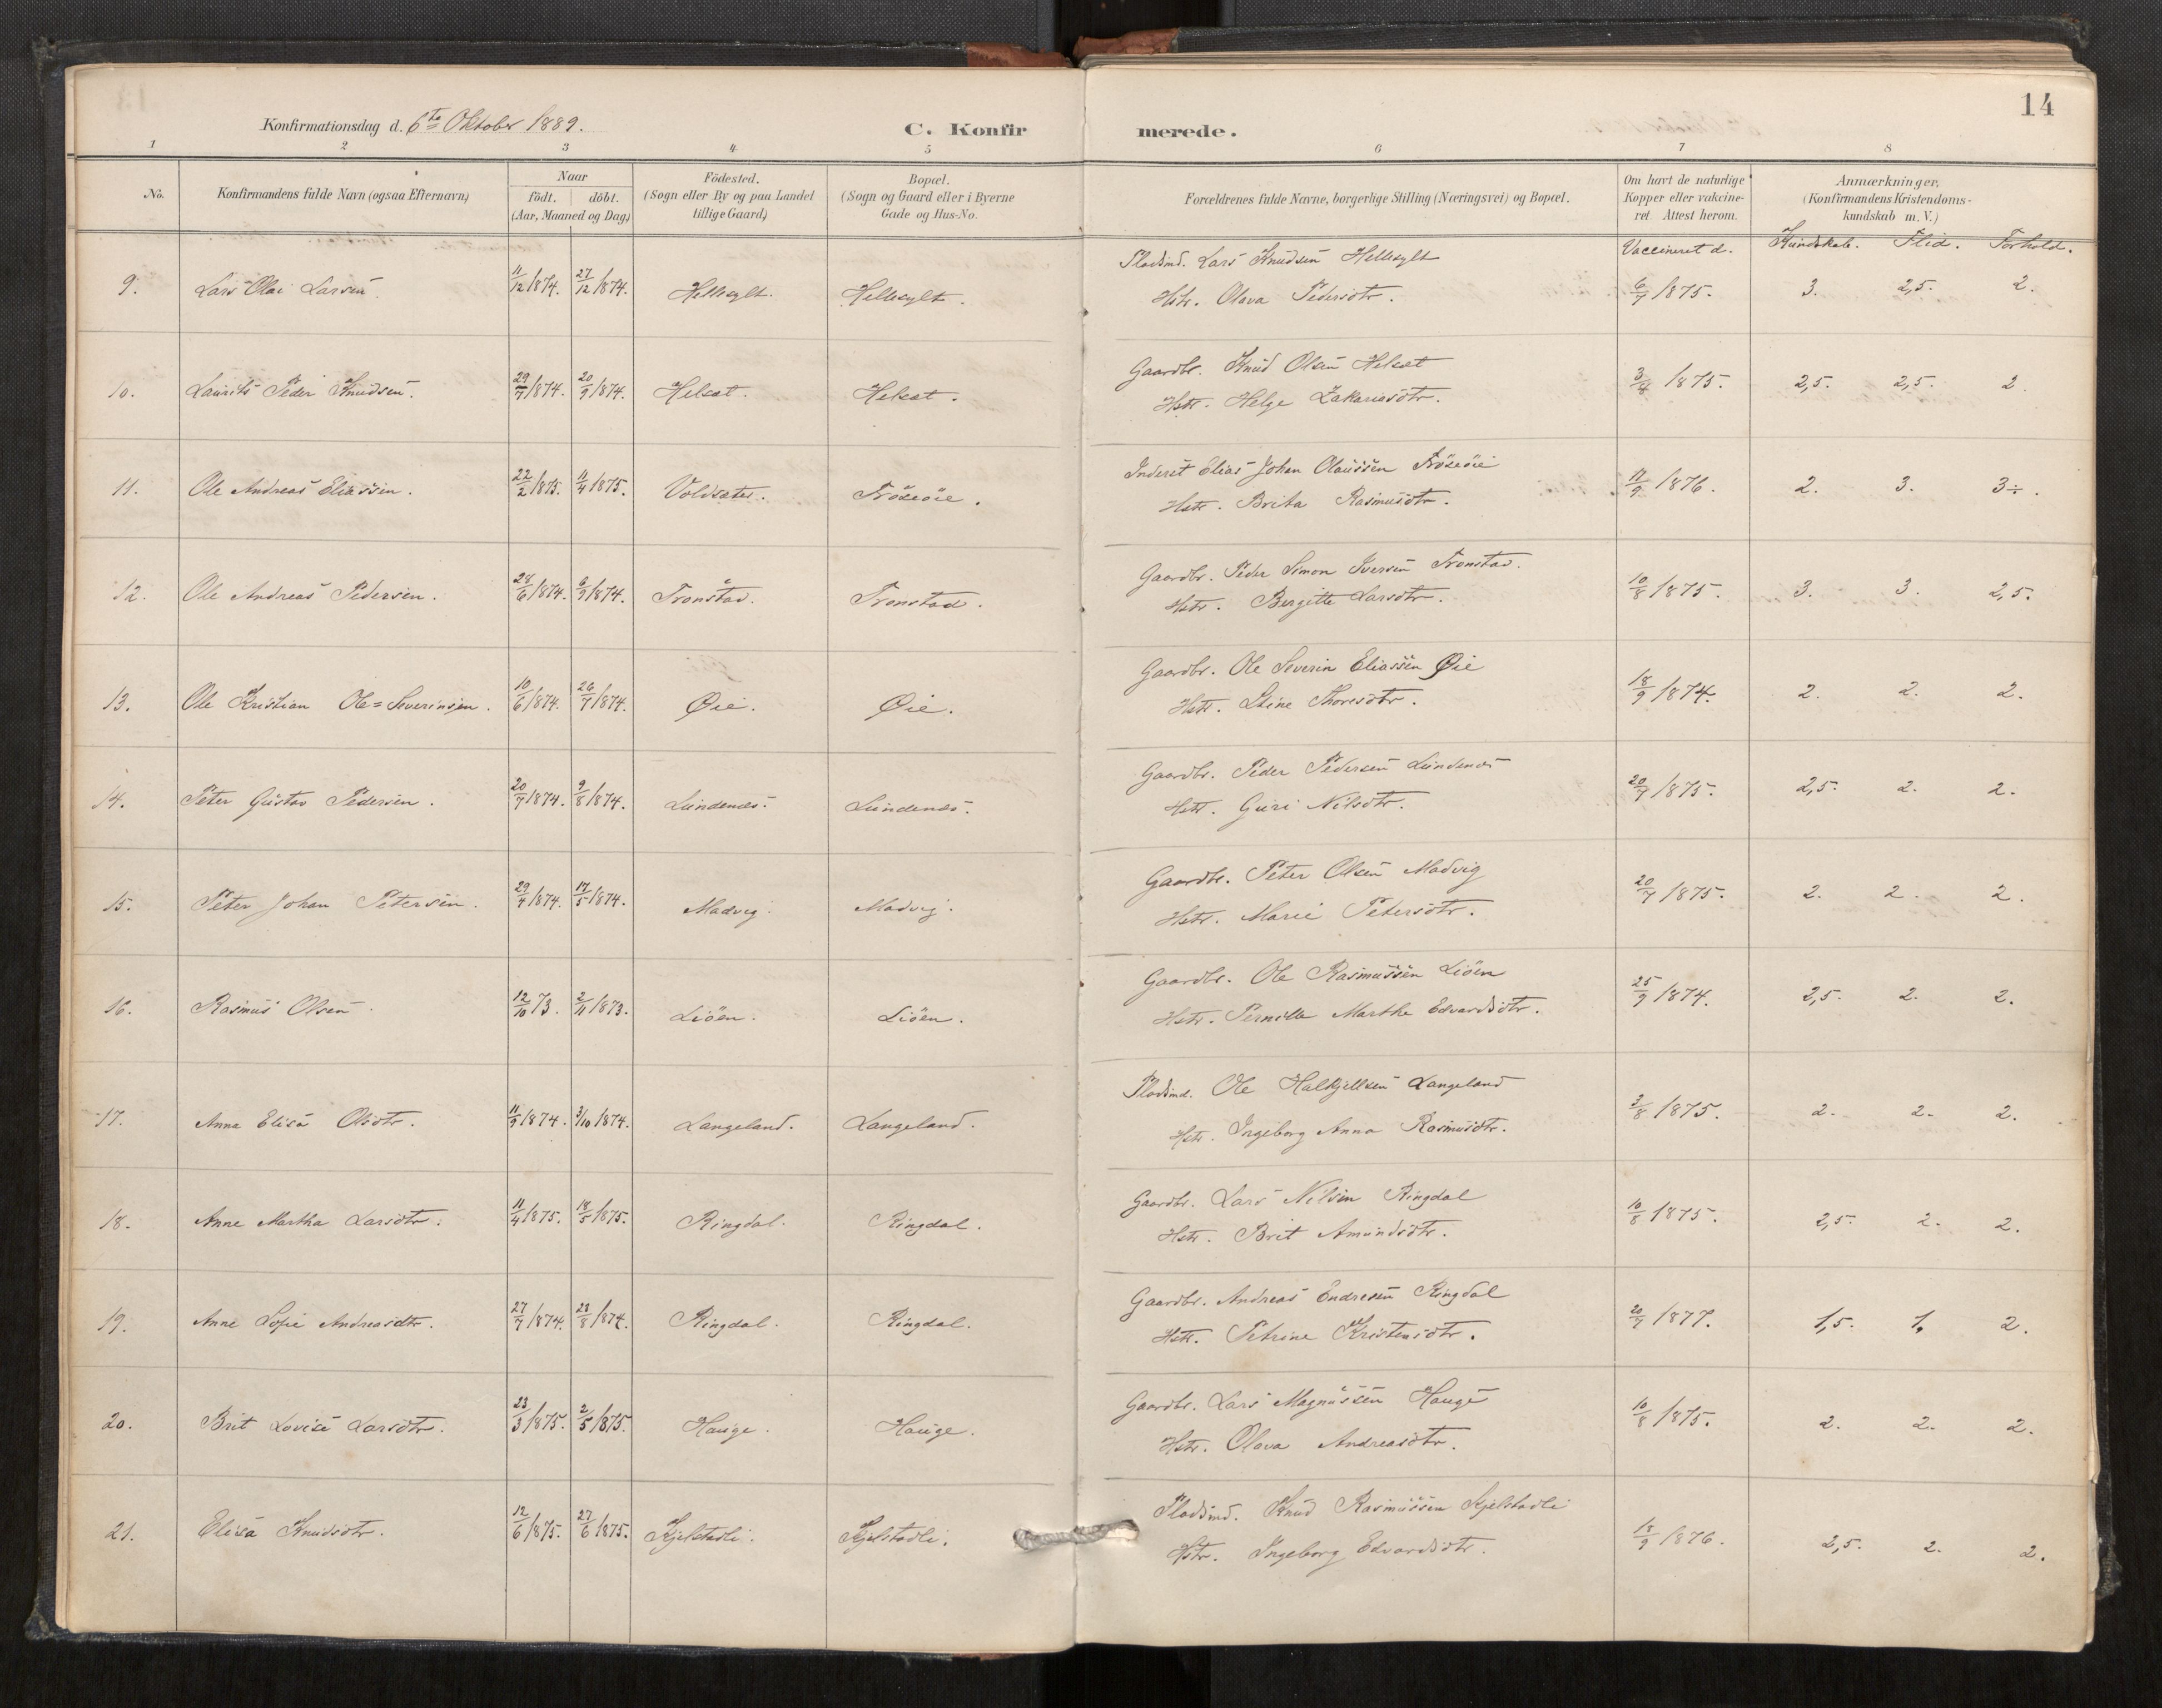 14
Konfirmationsdag d. 6te Oktober 1889. C. Konfirmerede.
1 2 3 4 5 6 7 8
No. Konfirmandens fulde Navn (ogsaa Efternavn) Naar født. døbt. (Aar, Maaned og Dag) Fødested. (Sogn eller By og paa Landet tillige Gaard) Bopæl. (Sogn og Gaard eller i Byerne Gade og Hus-No. Forældrenes fulde Navne, borgerlige Stilling (Næringsvei) og Bopæl. Om havt de naturlige Kopper eller vakcineret. Attest herom. Anmærkninger. (Konfirmandens Kristendomskundskab m. V.)
Vaccineret d. Kundskab. Flid. Forhold.
9. Lars Olai Larsen. 11/12 1874. 27/12 1874. Hellesylt. Hellesylt. Pladsmd. Lars Knudsen Hellesylt
Hstr. Olava Pedersdtr. 6/7 1875. 3. 2,5. 2.
10. Laurits Peder Knudsen. 29/7 1874. 20/9 1874. Helsæt. Helsæt. Gaardbr. Knud Olsen Helsæt
Hstr. Helge Zakariasdtr. 3/4 1875. 2,5. 2,5. 2.
11. Ole Andreas Eliassen. 22/2 1875. 11/4 1875. Voldsæter. Frøseøie. Inderst Elias Johan Olaussen Frøseøie
Hstr. Brita Rasmusdtr. 17/9 1876. 2. 3. 3÷.
12. Ole Andreas Pedersen. 28/6 1874. 6/9 1874. Tronstad. Tronstad. Gaardbr. Peder Simon Iversen Tronstad.
Hstr. Bergitte Larsdtr. 10/8 1875. 3. 3. 2,5.
13. Ole Kristian Ole=Severinsen. 10/6 1874. 26/7 1874. Øie. Øie. Gaardbr. Ole Severin Eliassen Øie
Hstr. Stine Thoresdtr. 18/9 1874. 2. 2. 2.
14. Peter Gustav Pedersen. 20/7 1874. 9/8 1874. Lundenes. Lundenes. Gaardbr. Peder Pedersen Lundenes
Hstr. Guri Nilsdtr. 20/7 1875. 2,5. 2. 2.
15. Peter Johan Petersen. 29/4 1874. 17/5 1874. Madvig. Madvig. Gaardbr. Peter Olsen Madvig
Hstr. Marie Petersdtr. 20/7 1875. 2. 2. 2.
16. Rasmus Olsen. 12/10 73. 2/11 1873. Liøen. Liøen. Gaardbr. Ole Rasmussen Liøen
Hstr. Pernille Marthe Edvardsdtr. 25/9 1874. 2,5. 2. 2.
17. Anna Elisa Olsdtr. 11/9 1874. 3/10 1874. Langeland. Langeland. Pladsmd. Ole Halkjellsen Langeland
Hstr. Ingeborg Anna Rasmusdtr. 3/8 1875. 2. 2. 2.
18. Anne Martha Larsdtr. 11/4 1875. 18/5 1875. Ringdal. Ringdal. Gaardbr. Lars Nilsen Ringdal
Hstr. Brit Amundsdtr. 10/8 1875. 2,5. 2. 2.
19. Anne Sofie Andreasdtr. 27/7 1874. 23/8 1874. Ringdal. Ringdal. Gaardbr. Andreas Endresen Ringdal
Hstr. Petrine Kristensdtr. 20/7 1877. 1,5. 1. 2.
20. Brit Lovise Larsdtr. 23/3 1875. 2/5 1875. Hauge. Hauge. Gaardbr. Lars Magnussen Hauge
Hstr. Olava Andreasdtr. 10/8 1875. 2. 2. 2.
21. Elisa Knudsdtr. 12/6 1875. 27/6 1875. Kjelstadli. Kjelstadli. Pladsmd. Knud Rasmussen Kjelstadli
Hstr. Ingeborg Edvardsdtr. 18/9 1876. 2,5. 2. 2.